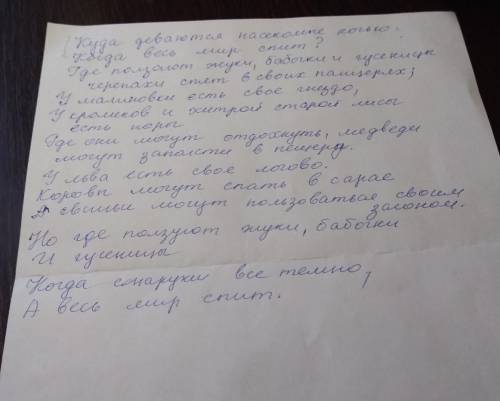 Куда деваются насекомые ночью,
Когда весь мир спит?
Где ползают жуки, бабочки и гусеницы
черепахи спят в своих панцерях;
У малиновки есть свое гнездо,
У кроликов и хитрой старой лисы
есть норы
Где они могут отдохнуть, медведи
могут запасти в пещеру.
У льва есть свое логово.
Коровы могут спать в сарае
А свиньи могут пользоваться своим
загоном.
Но где ползуют жуки, бабочки
И гусеницы
Когда снаружи все темно,
А весь мир спит.